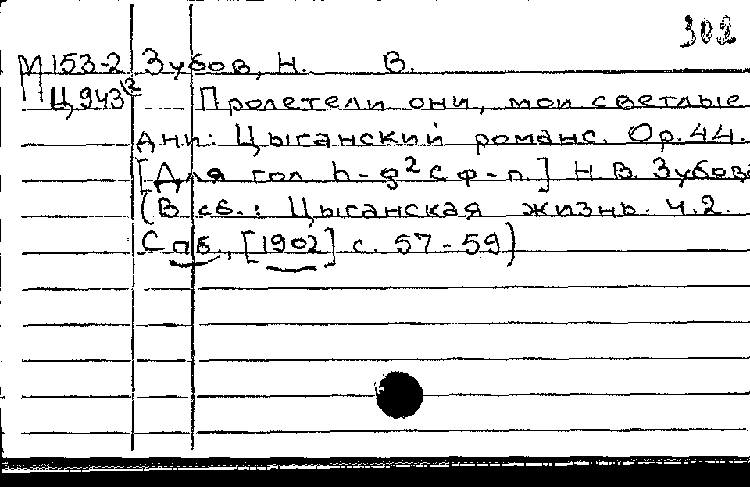 302
М 153-2 Зубов, Н. В.
Ц 943 Пролетели они, мои светлые
дни: Цыганский романс. Op. 44.
[Для гол. h-g² с ф-п.] Н. В. Зубова
(В сб.: Цыганская жизнь. ч. 2.
Спб., [1902] с. 57-59)